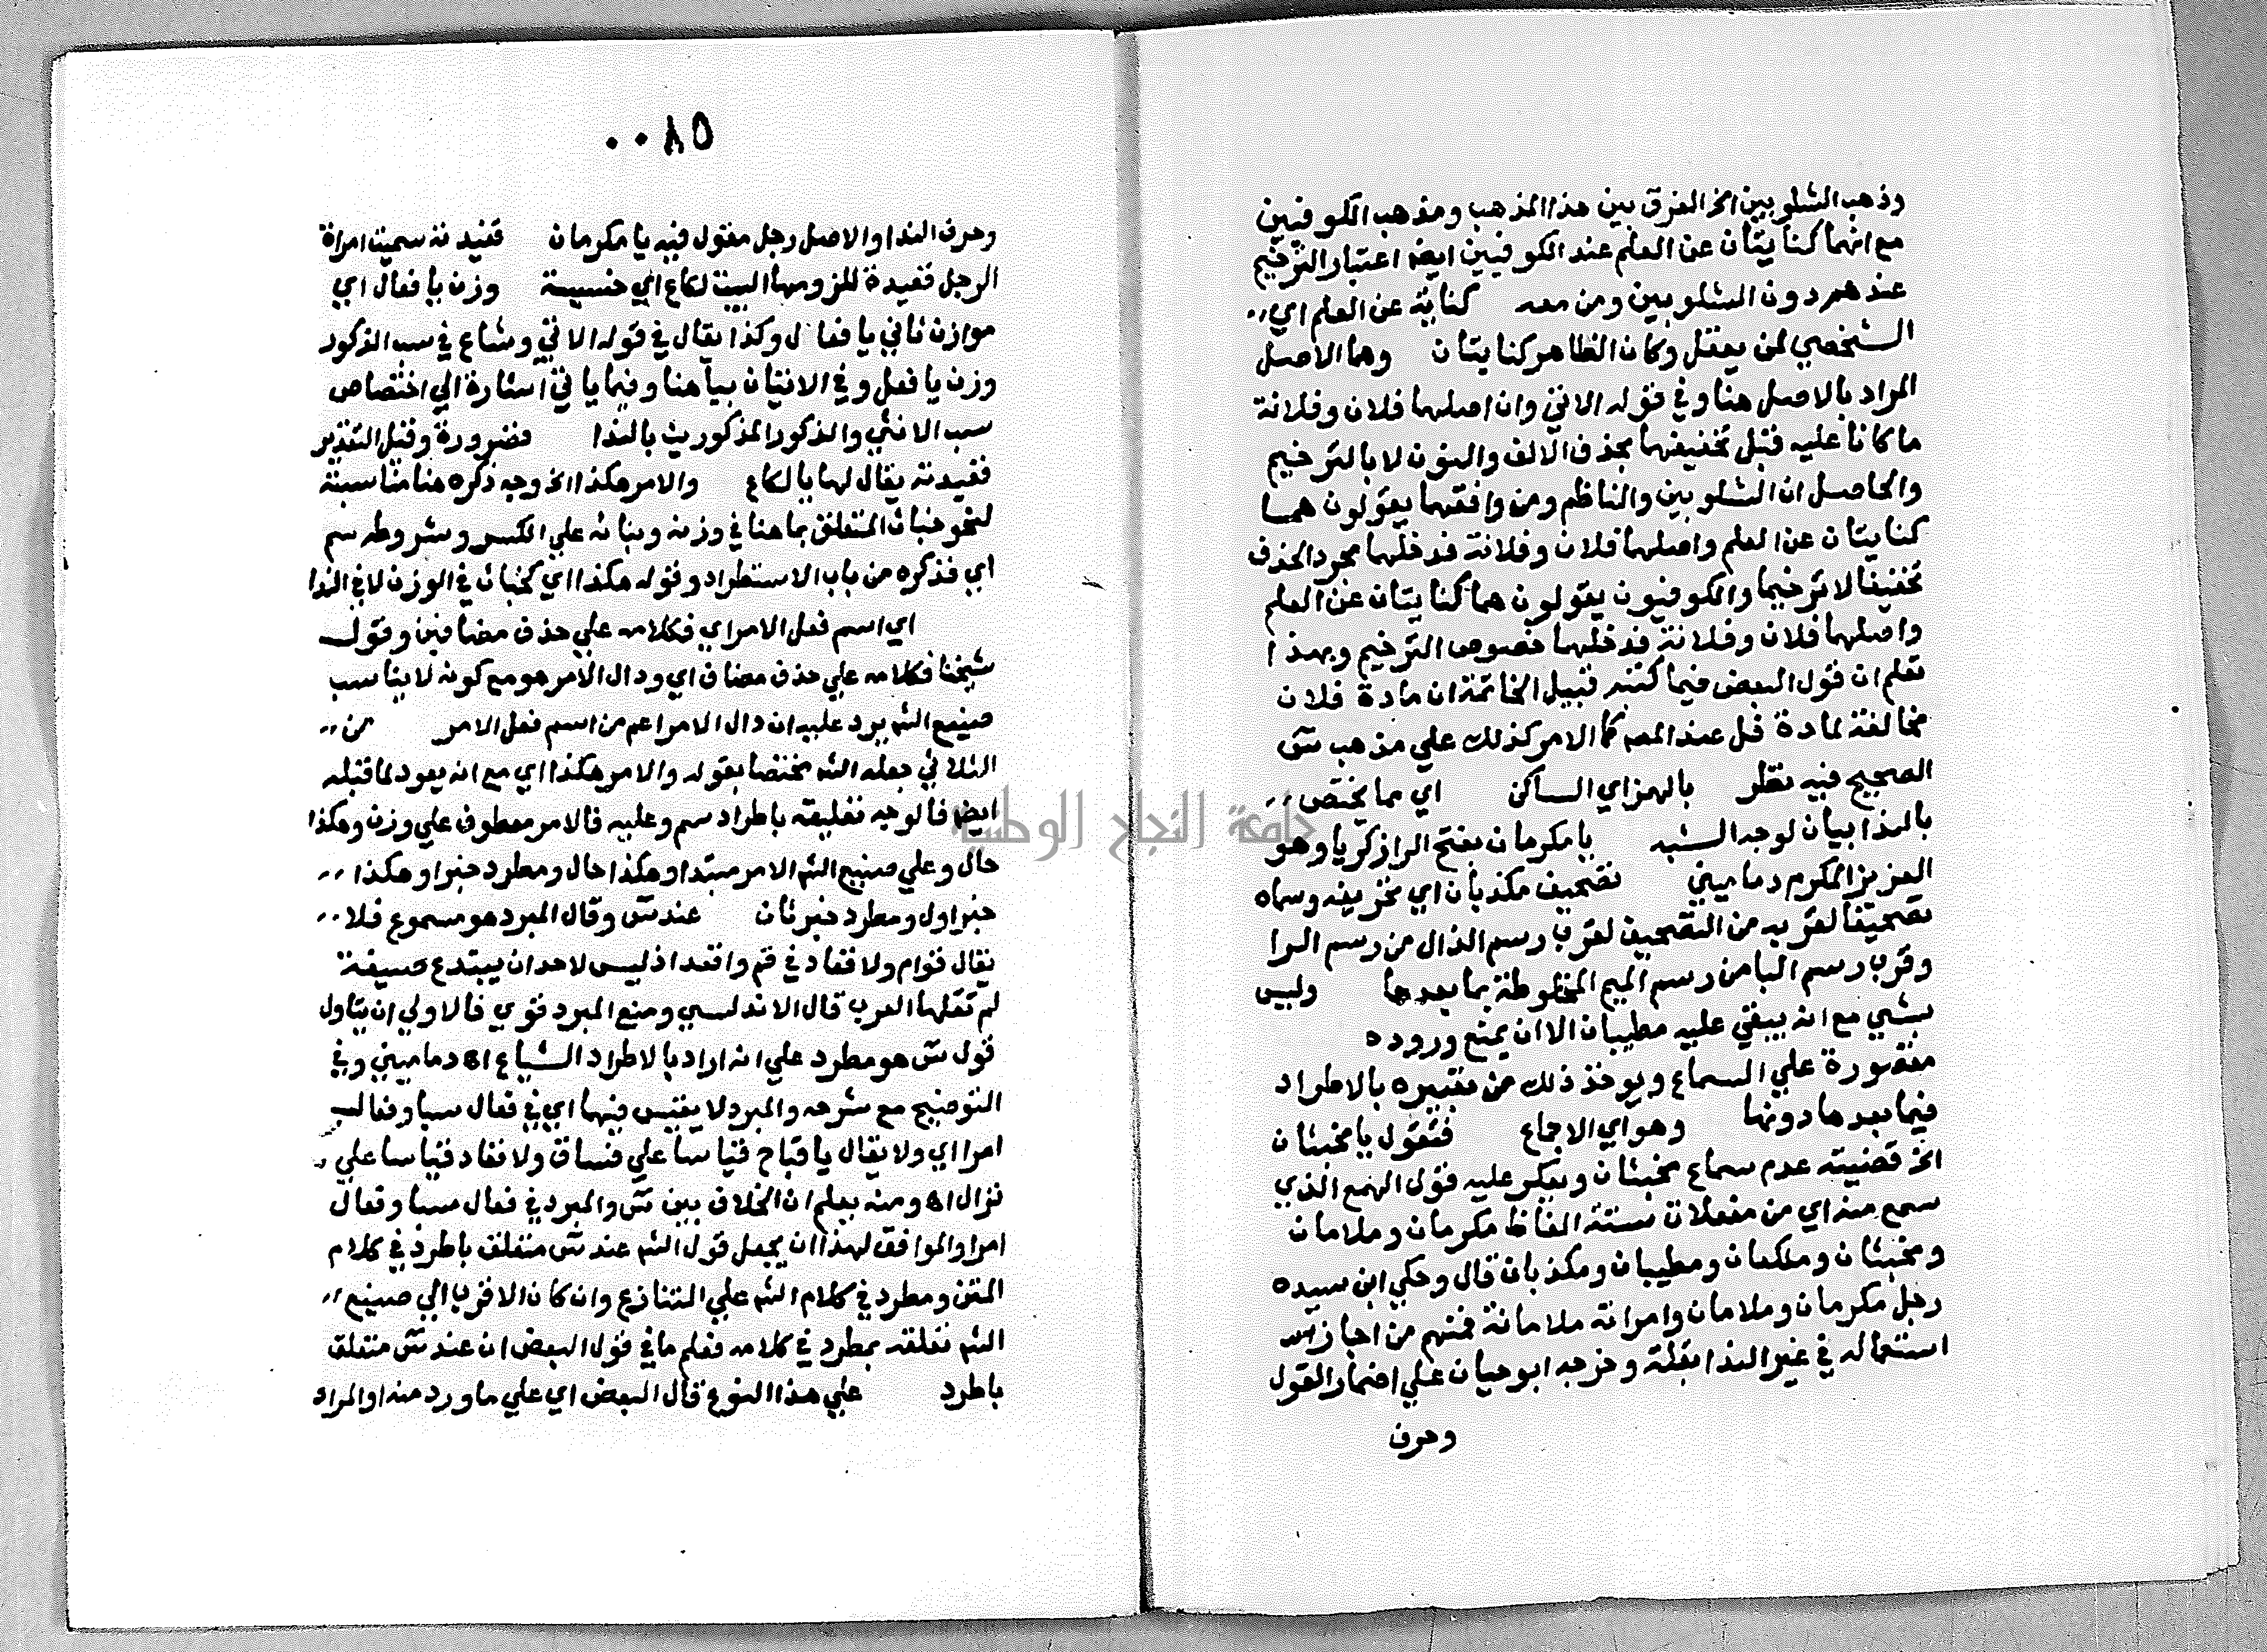 وذهب الشلوبين الخ الفرق بين هذا المذهب ومذهب الكوفيين
مع انهما كنايتان عن العلم عند الكوفيين ايضا اعتبار الترخيم
عندهم دون الشلوبين ومن معه كناية عن العلم اي
الشخصي لمن يعقل وكان الظاهر كنايتان وهما الاصل
المراد بالاصل هنا وفي قوله الاتي وان اصلهما فلان وفلانة
ما كانا عليه قبل تخفيفهما بحذف الالف والنون لا بالترخيم
والحاصل ان الشلوبين والناظم ومن وافقهما يقولون هما
كنايتان عن العلم واصلهما فلان وفلانة فدخلهما مجرد الحذف
تخفيفا لا ترخيما والكوفيون يقولون هما كنايتان عن العلم
واصلهما فلان وفلانة فدخلهما خصوص الترخيم وبهذا
تعلم ان قول البعض فيما كتبه قبيل الخاتمة ان مادة فلان
مخالفة لمادة فل عند المصـ كما الامر كذلك علي مذهب سـ
الصحيح فيه نظر بالهمز اي الساكن اي مما يختص
بالندا بيان لوجه الشبه يا مكرمان بفتح الرا زكريا وهو
العزيز المكرم دماميني تصحيف مكذبان اي تحريف وسماه
تصحيفا لقربه من التصحيف لقرب رسم الذال من رسم الرا
وقرب رسم البا من رسم الميم المخلوطة بما بعدها وليس
بشي مع انه يبقي عليه مطيبان الا ان يمنع وروده
مقصورة علي السماع ويوخذ ذلك من تعبيره بالاطراد
فيما بعدها دونها وهو اي الاجماع فتقول يا مخبثان
الخ قضيته عدم سماع مخبثان ويعكر عليه قول الهمع الذي
سمع منه اي من مفعلان ستة الفاظ مكرمان وملامان
ومخبثان وملكعان ومطيبان ومكذبان قال وحكي ابن سيده
رجل مكرمان وملامان وامراة ملامانة فمنهم من اجاز
استعماله في غير الندا بقلة وخرجه ابو حيان علي اضمار القول
وحرف
٠٠٨٥
وحرف الندا والاصل رجل مقول فيه يا مكرمان قعيدته سميت امراة
الرجل قعيدة للزومها البيت لكاع اي خسيسة وزن يا فعال اي
موازن ثاني يا فعال وكذا يقال في قوله الاتي وشاع في سب الذكور
وزن يا فعل وفي الاتيان بيا هنا وفيما ياتي اشارة الي اختصاص
سب الانثي والذكور المذكورين بالندا فضرورة وقيل التقدير
قعيدته يقال لها يا لكاع والامر هكذا الخ وجه ذكره هنا مناسبته
لنحو خباث المتعلق بما هنا في وزنه وبنائه علي الكسر وشروطه سم
اي فذكره من باب الاستطراد وقوله هكذا اي كخباث في الوزن لا في الندا
اي اسم فعل الامر اي فكلامه علي حذف مضافين وقول
شيخنا فكلامه علي حذف مضاف اي ودال الامر هو مع كونه لا يناسب
صنيع الشـ يرد عليه ان دال الامر اعم من اسم فعل الامر من
الثلاثي جعله الشـ مختصا بقوله والامر هكذا اي مع انه يعود لما قبله
ايضا فالوجه تعليقه باطراد سم وعليه فالامر معطوف علي وزن وهكذا
حال وعلي صنيع الشـ الامر مبتدا وهكذا حال ومطرد خبر او هكذا
خبر اول ومطرد خبر ثان عند سـ وقال المبرد هو مسموع فلا
يقال قوام ولا قعاد في قم واقعد اذ ليس لاحد ان يبتدع صيغة
لم تقلها العرب قال الاندلسي ومنع المبرد قوي فالاولي ان يتاول
قول سـ هو مطرد علي انه اراد بالاطراد الشياع اه دماميني وفي
التوضيح مع شرحه والمبرد لا يقيس فيهما اي في فعال سبا وفعال
امرا اي ولا يقال يا قباح قياسا علي فساق ولا قعاد قياسا علي
نزال اه ومنه يعلم ان الخلاف بين سـ والمبرد في فعال سبا وفعال
امرا والموافق لهذا ان يجعل قول الشـ عند سـ متعلق باطرد في كلام
المتن ومطرد في كلام الشـ علي التنازع وان كان الاقرب الي صنيع
الشـ تعلقه بمطرد في كلامه فعلم ما في قول البعض ان عند سـ متعلق
باطرد علي هذا النوع قال البعض اي علي ما ورد منه او المراد
جامعة النجاح الوطنية